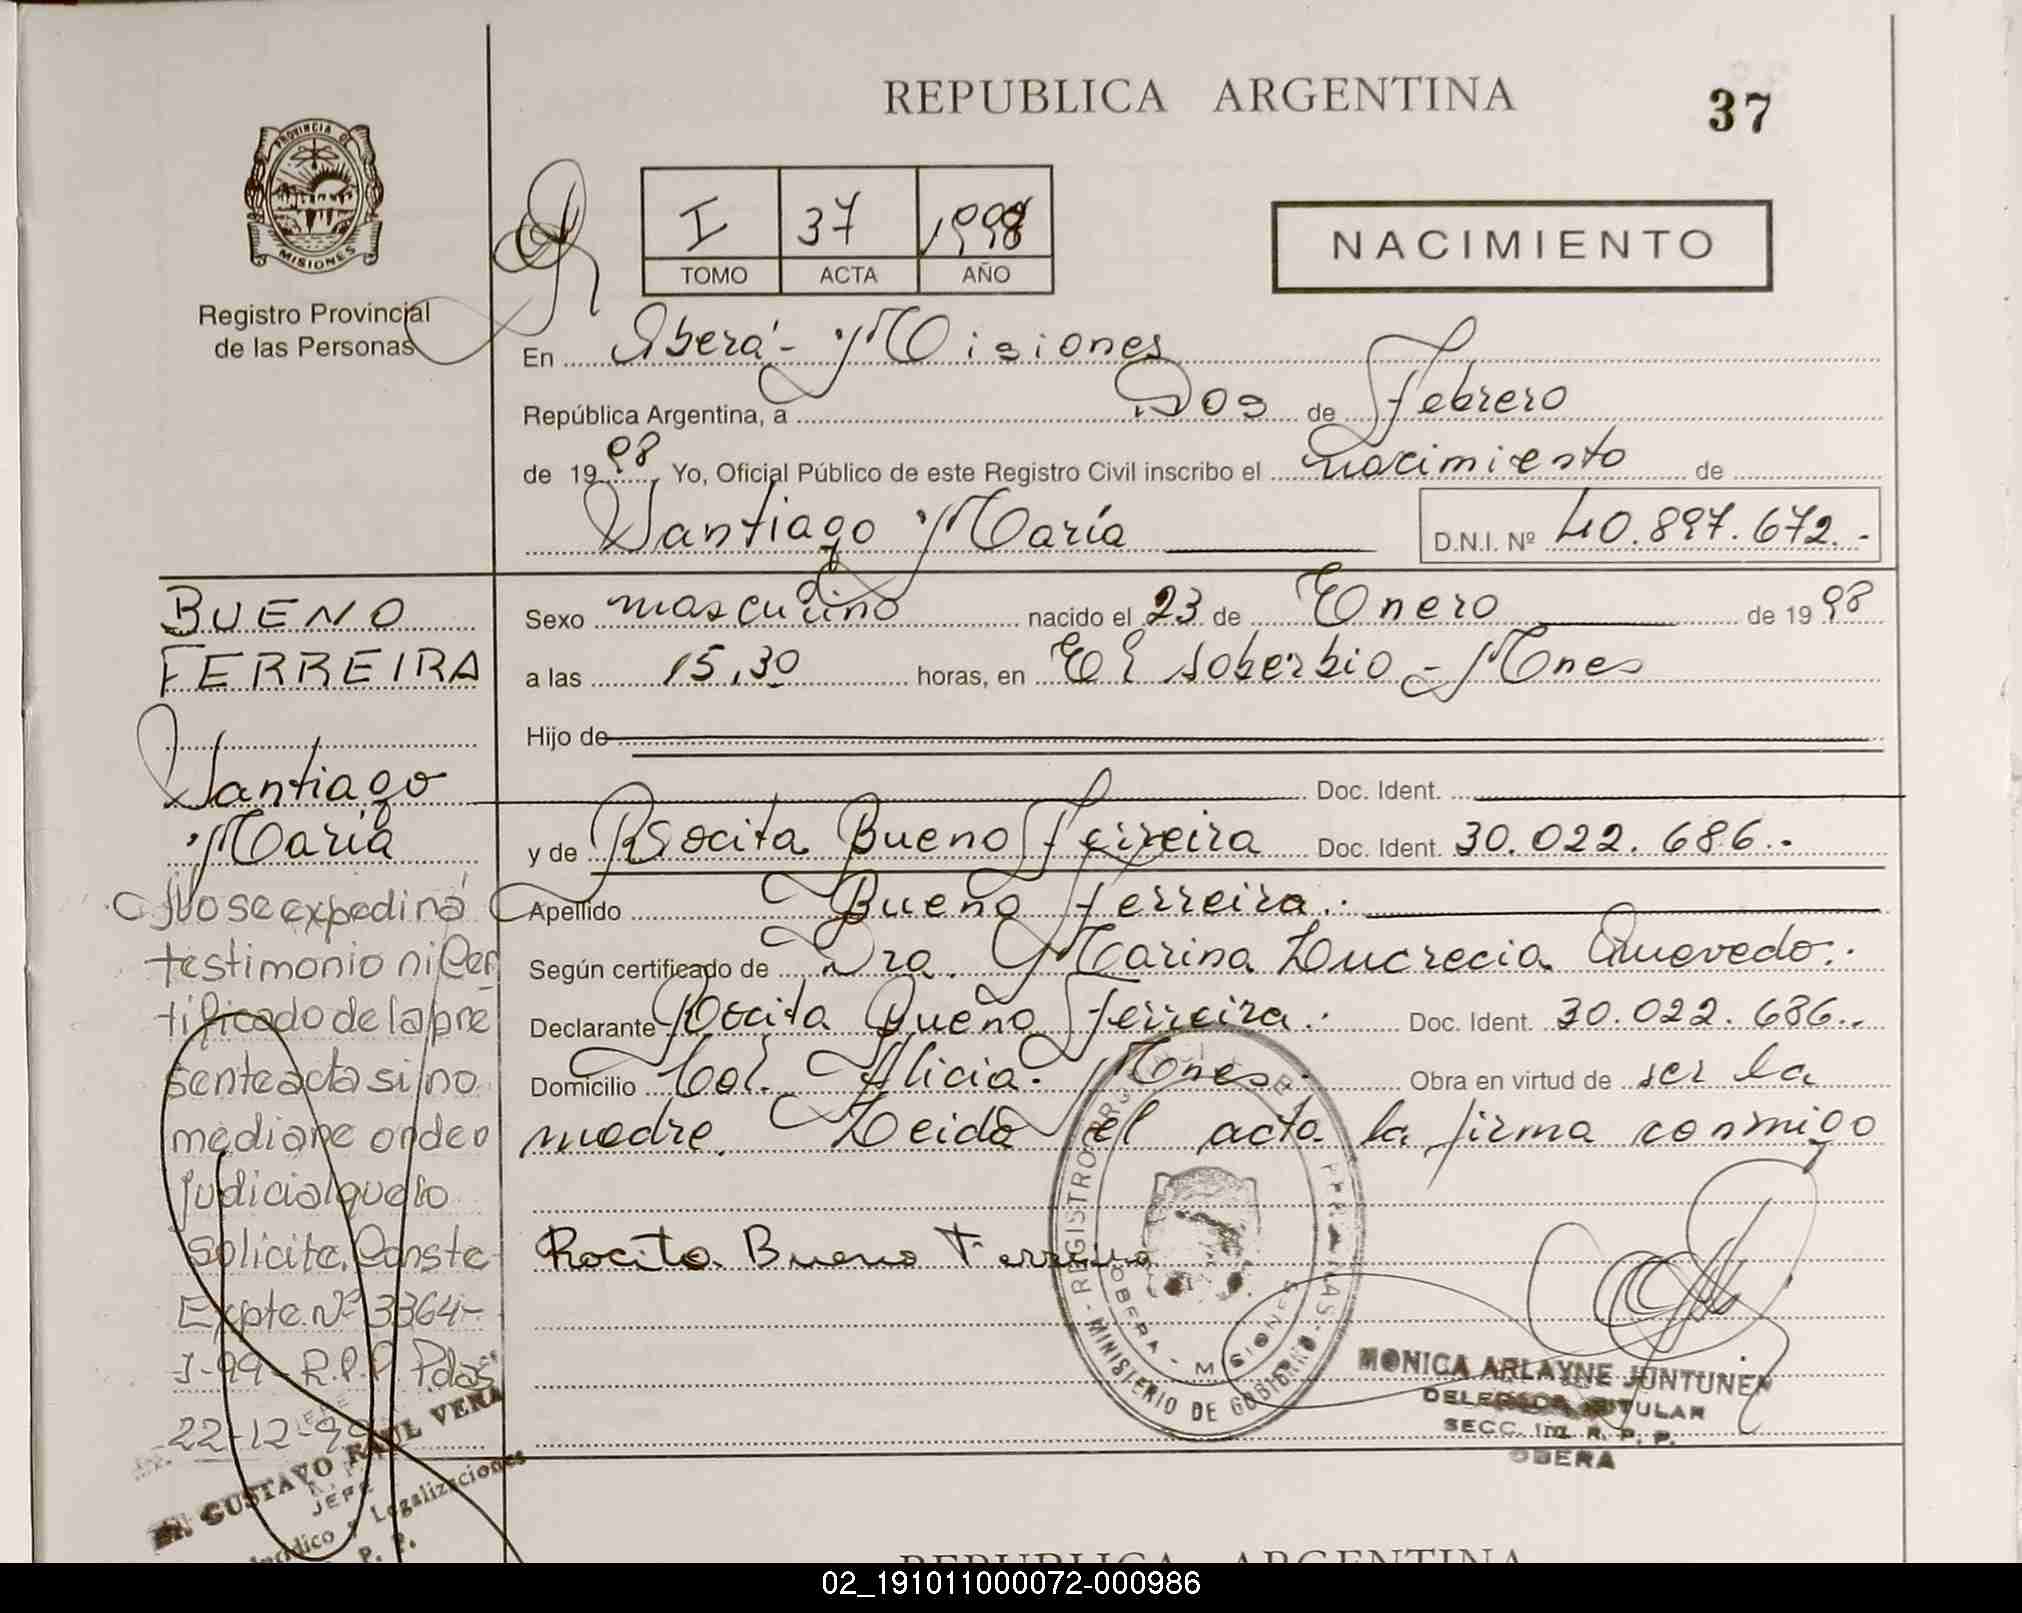 REPUBLICA ARGENTINA
37
PROVINCIA DE
MISIONES
Registro Provincial
de las Personas
I 37 1998
TOMO ACTA AÑO
NACIMIENTO
En Oberá - Misiones
República Argentina, a Dos de Febrero
de 19 98 Yo, Oficial Público de este Registro Civil inscribo el nacimiento de
Santiago María D.N.I. Nº 40.897.672.-
BUENO
FERREIRA
Santiago
María
Sexo masculino nacido el 23 de Enero de 19 98
a las 15,30 horas, en El Soberbio - Mnes
Hijo de
Doc. Ident.
y de Rocita Bueno Ferreira Doc. Ident. 30.022.686.-
Apellido Bueno Ferreira.-
Según certificado de Dra. Marina Lucrecia Quevedo.-
Declarante Rocita Bueno Ferreira.- Doc. Ident. 30.022.686.-
Domicilio Col. Alicia - Mnes. Obra en virtud de ser la
madre. Leida el acta la firma conmigo
Rocita Bueno Ferreira
No se expedirá
testimonio ni Cer
tificado de la pre
sente acta si no
mediane orden
judicial que lo
solicite. Conste
Expte. Nº 3364-
J-99- R.P.P. Pdas
22-12-99
GUSTAVO RAUL VERA
JEFE
Legalizaciones
REGISTRO
OBERA - MISIONES
MINISTERIO DE GOBIERNO
MONICA ARLAYNE JUNTUNEN
TITULAR
SECC. R. P. P.
OBERA
REPUBLICA ARGENTINA
02_191011000072-000986